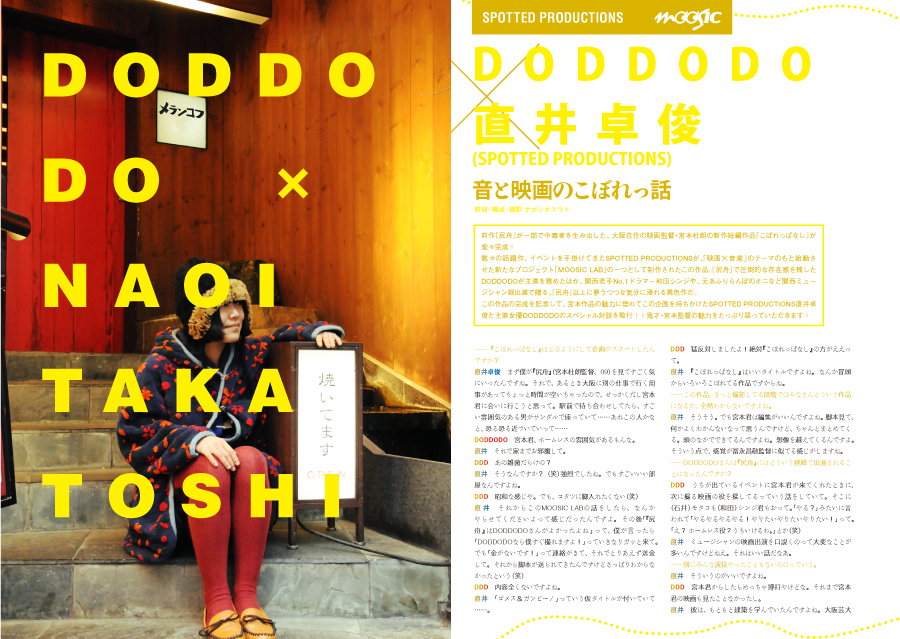 DODDO
DO ×
NAOI
TAKA
TOSHI
メランコフ
焼いてます
OPEN
SPOTTED PRODUCTIONS
MOOSIC
DODDODO
×
直井卓俊
(SPOTTED PRODUCTIONS)
音と映画のこぼれっ話
前作『尻舟』が一部で中毒者を生み出した、大阪在住の映画監督・宮本杜朗の新作短編作品『こぼれっぱなし』が
堂々完成!
数々の話題作、イベントを手掛けてきたSPOTTED PRODUCTIONSが、『映画×音楽』のテーマのもと始動さ
せた新たなプロジェクト「MOOSIC LAB」の一つとして制作されたこの作品。『尻舟』で圧倒的な存在感を残した
DODDODOが主演を務めたほか、関西若手No.1ドラマー和田シンジや、元あふりらんぽのオニなど関西ミュー
ジシャン総出演で贈る、『尻舟』以上に夢うつつな気分に溺れる異色作だ。
この作品の完成を記念して、宮本作品の魅力に惚れてこの企画を持ちかけたSPOTTED PRODUCTIONS直井卓
俊と主演女優DODDODOのスペシャル対談を敢行!!鬼才・宮本監督の魅力をたっぷり語っていただきます!
――『こぼれっぱなし』はどのようにして企画がスタートしたん
ですか?
直井卓俊 まず僕が『尻舟』(宮本杜朗監督、09)を見てすごく気
にいったんですね。それで、あるとき大阪に別の仕事で行く用
事があってちょっと時間が空いちゃったので、せっかくだし宮本
君に会いに行こうと思って。駅前で待ち合わせしてたら、すご
い雰囲気のある男がサンダルで座っていて……あれこの人かな
と、恐る恐る近づいていって……
DODDODO 宮本君、ホームレスの雰囲気があるもんな。
直井 それで家までお邪魔して。
DDD あの雑菌だらけの?
直井 そうなんですか?(笑)強烈でしたね。でもすごいいい部
屋なんですよね。
DDD 昭和な感じや。でも、コタツに脚入れたくない(笑)
直井 それからこのMOOSIC LABの話をしたら、なんか
やらせてくださいよって感じだったんですよ。その後『尻
舟』はDODDODOさんがよかったよね」って、僕が言ったら
「DODDODOなら僕すぐ撮れますよ!」っていきなりガッと来て。
でも「金がないです!」って連絡がきて、それでとりあえず送金
して。それから脚本が送られてきたんですけどさっぱりわからな
かったという(笑)
DDD 内容全くないですよね。
直井 「ゴメス&ガンビーノ」っていう仮タイトルが付いていて
……。
DDD 猛反対しましたよ!絶対『こぼれっぱなし』の方がええっ
て。
直井 『こぼれっぱなし』はいいタイトルですよね。なんか冒頭
からいろいろこぼれてる作品ですからね。
――この作品、きっと撮影してる段階ではみなさんどういう作品
になるか、全然わからないですよね。
直井 そうそう。でも宮本君は編集がいいんですよね。脚本見て、
何かよくわかんないなって思うんですけど、ちゃんとまとめてく
る。頭のなかでできてるんですよね。想像を越えてくるんですよ。
そういう点で、感覚が富永昌敬監督に似てる感じがしますね。
――DODDODOさんは『尻舟』にはどういう経緯で出演されるこ
とになったんですか?
DDD うちが出ているイベントに宮本君が来てくれたときに、
次に撮る映画の役を探してるっていう話をしていて。そこに
(石井)モタコも(和田)シンジ君もおって。「やる?」みたいに言
われて「やるやるやるやる!やりたいやりたいやりたい!」って。
「え?ホームレス役?うちいけるわ。」とか(笑)
直井 ミュージシャンの映画出演を口説くのって大変なことが
多いんですけどねえ。それはいい話だなあ。
――別にみんな演技やったこともないのにっていう。
直井 そういうのがいいですよね。
DDD 宮本君からしたらめっちゃ博打やけどな。それまで宮本
君の映画も見たことなかったし。
直井 彼は、もともと建築を学んでいたんですよね。大阪芸大